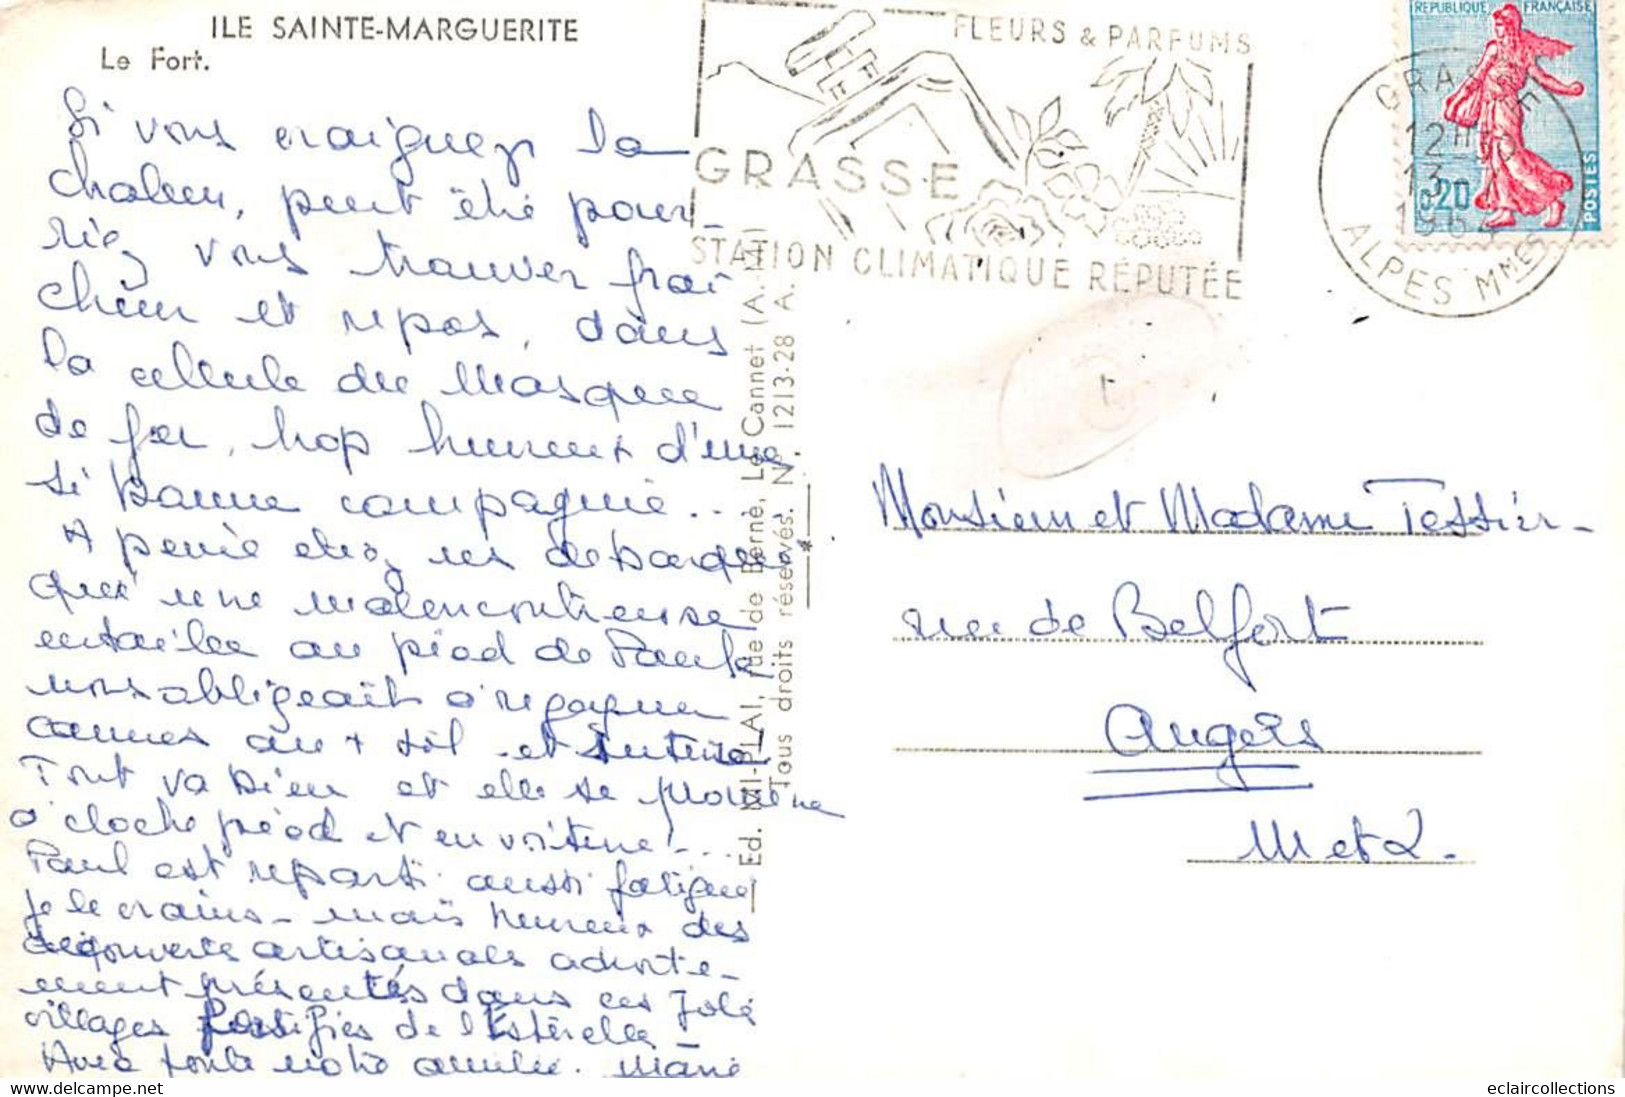 ILE SAINTE-MARGUERITE
Le Fort.
Si vous craignez la
chaleur, peut être pour-
riez vous trouver fraî
cheur et repos, dans
la cellule du Masque
de fer, trop heureux d'une
si bonne compagnie...
A peine étiez
qu'une malencontreuse
entaille au pied de Paule
nous obligeait à regagner
Cannes au + tôt et
Tout va bien et elle se promène
à cloche pied et en voiture!...
Paul est reparti aussi fatigué
je le crains - mais heureux des
découvertes artisanales adroite-
ment présentés dans ces joli
villages fortifiés de l'Estérelle
Avec toute notre amitié. Marie
Ed. MI-PLAI, rue de Berne, Le Cannet (A.-M.)
Tous droits réservés. N. 1213-28 A.
*
FLEURS & PARFUMS
GRASSE
STATION CLIMATIQUE RÉPUTÉE
REPUBLIQUE FRANÇAISE
0,20
POSTES
GRASSE
12H
13
196
ALPES MMES
Monsieur et Madame Tessier-
rue de Belfort
Angers
M et L.
eclaircollections